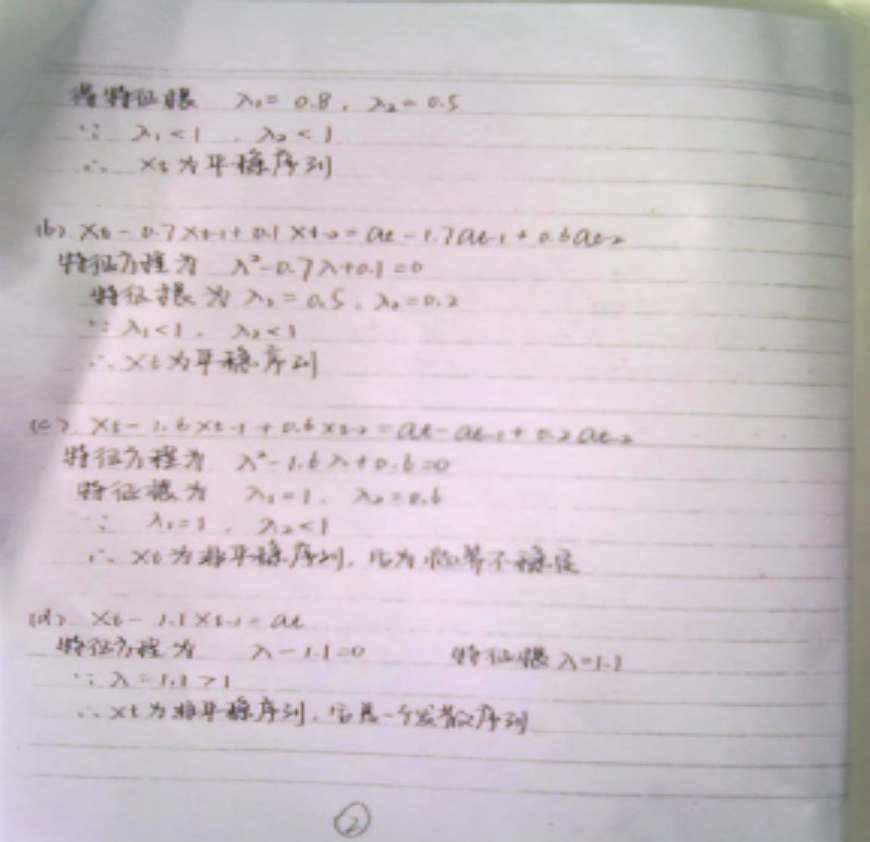 得特征根 λ₁=0.8, λ₂=0.5
∵ λ₁<1, λ₂<1
∴ Xt为平稳序列
(b) Xt-0.7Xt-1+0.1Xt-2=at-1.7at-1+0.6at-2
特征方程为 λ²-0.7λ+0.1=0
特征根为 λ₁=0.5, λ₂=0.2
∵ λ₁<1, λ₂<1
∴ Xt为平稳序列
(c) Xt-1.6Xt-1+0.6Xt-2=at-at-1+0.2at-2
特征方程为 λ²-1.6λ+0.6=0
特征根为 λ₁=1, λ₂=0.6
∵ λ₁=1, λ₂<1
∴ Xt为非平稳序列, 不稳定
(d) Xt-1.1Xt-1=at
特征方程为 λ-1.1=0 特征根λ=1.1
∵ λ=1.1>1
∴ Xt为非平稳序列, 它是一个发散序列
②